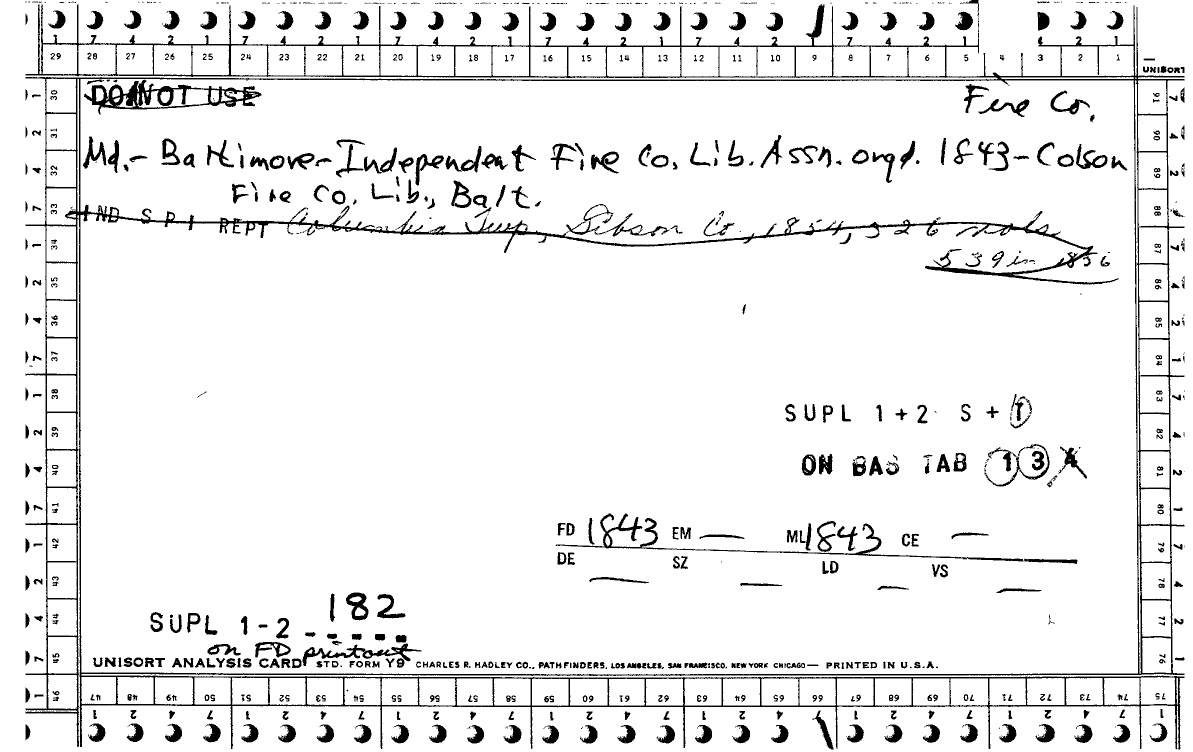 7 4 2 1 7 4 2 1 7 4 2 1 7 4 2 1 7 4 2 1 7 4 2 1 7 4 2 1
29 28 27 26 25 24 23 22 21 20 19 18 17 16 15 14 13 12 11 10 9 8 7 6 5 4 3 2 1
UNISORT
DO NOT USE
Fire Co.
Md.- Baltimore- Independent Fire Co. Lib. Assn. orgd. 1843 - Colson
Fire Co. Lib., Balt.
IND S P I REPT Columbia Twp, Gibson Co, 1854, 326 vols
539 in 1856
SUPL 1+2 S + T
ON BAS TAB 1 3 4
FD 1843 EM — ML 1843 CE —
DE — SZ — LD — VS —
182
SUPL 1-2 - - - - -
on FD printout
UNISORT ANALYSIS CARD STD. FORM Y9 CHARLES R. HADLEY CO., PATHFINDERS, LOS ANGELES, SAN FRANCISCO, NEW YORK CHICAGO — PRINTED IN U.S.A.
46 47 48 49 50 51 52 53 54 55 56 57 58 59 60 61 62 63 64 65 66 67 68 69 70 71 72 73 74 75